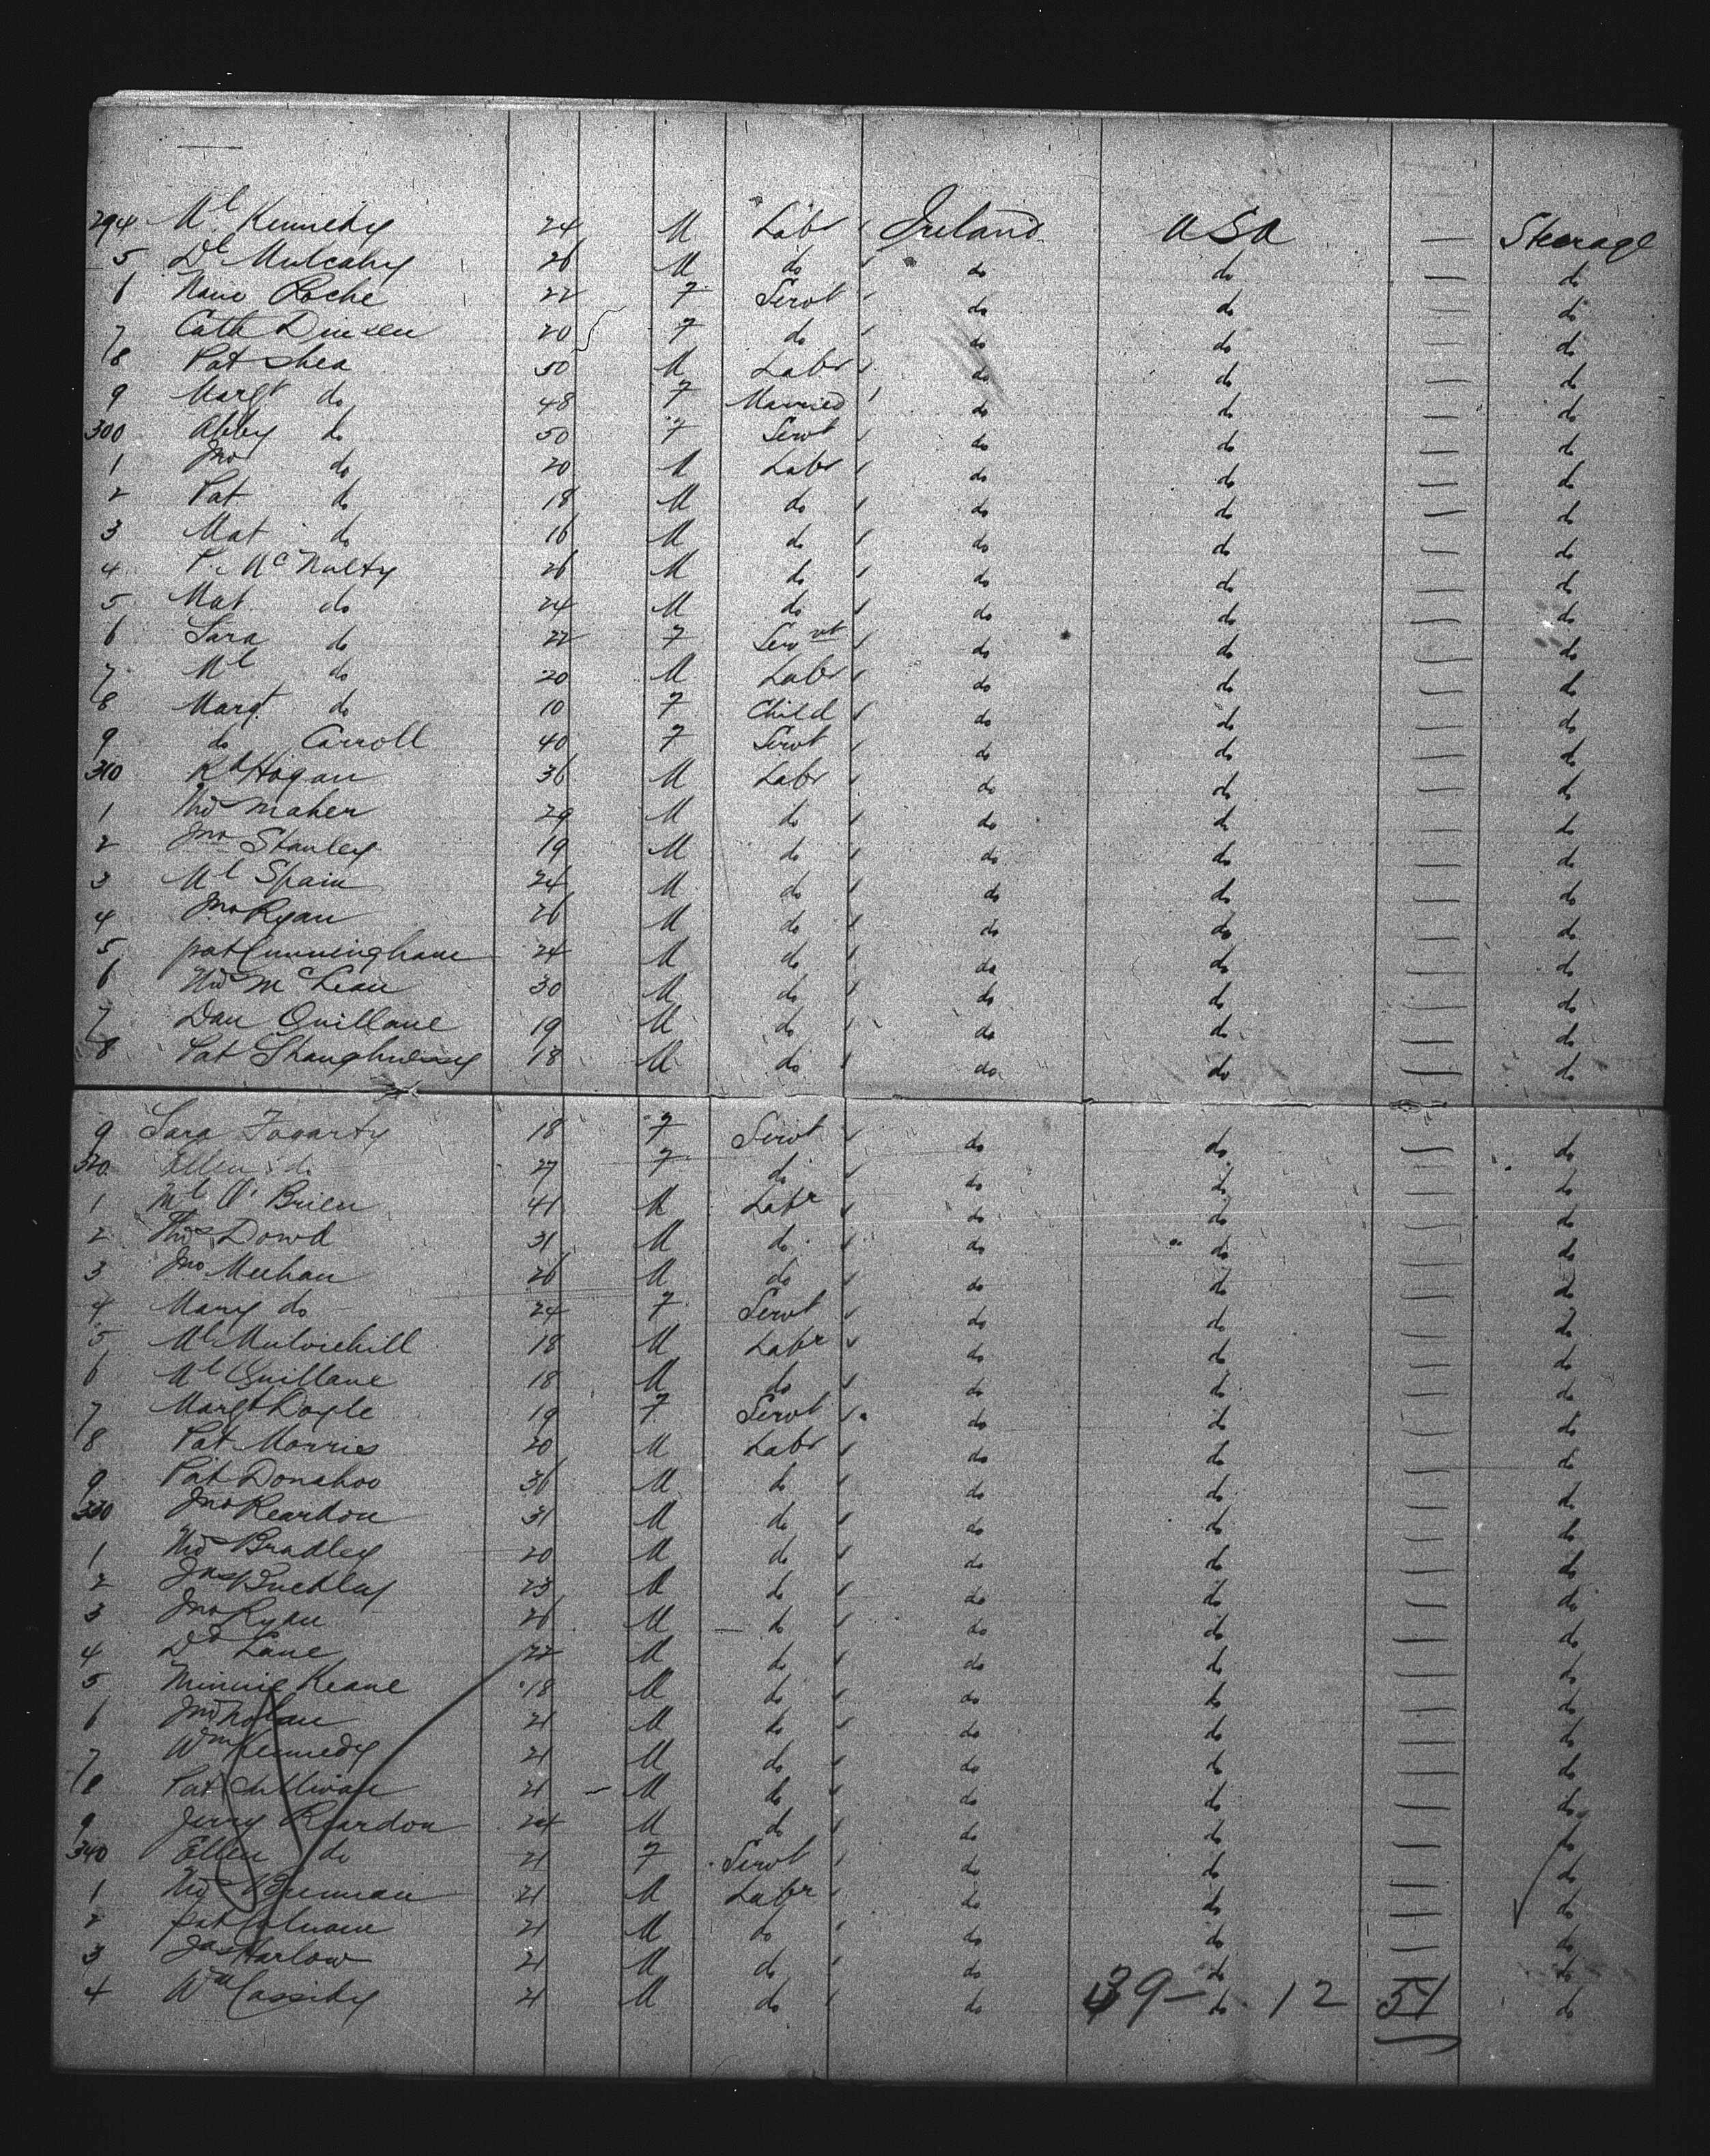 294 Ml Kennedy 24 M Labr Ireland USA — Steerage
5 Dl Mulcahy 26 M do do do — do
6 Roche 22 F Servt do do — do
7 Cath Dineen 20 F do do do — do
8 Pat Shea 50 M Labr do do — do
9 Margt do 48 F Married do do — do
300 Abby do 50 F Servt do do — do
1 Jno do 20 M Labr do do — do
2 Pat do 18 M do do do — do
3 Mat do 16 M do do do — do
4 P. McNulty 26 M do do do — do
5 Mat do 24 M do do do — do
6 Sara do 22 F Servnt do do — do
7 Ml do 20 M Labr do do — do
8 Margt do 10 F Child do do — do
9 do Carroll 40 F Servt do do — do
310 Rd Hogan 36 M Labr do do — do
1 Wm Maher 29 M do do do — do
2 Jno Stanley 19 M do do do — do
3 Ml Spain 24 M do do do — do
4 Jno Ryan 26 M do do do — do
5 pat Cunninghame 24 M do do do — do
6 Wm McLean 30 M do do do — do
7 Dan Quillane 19 M do do do — do
8 Pat Shaughnessy 18 M do do do — do
9 Sara Fogarty 18 F Servt do do — do
320 Ellen do 27 F do do do — do
1 Ml O'Brien 41 M Labr do do — do
2 Thos Dowd 31 M do do do — do
3 Jno Meehan 26 M do do do — do
4 Mary do 24 F Servt do do — do
5 Ml Mulviehill 18 M Labr do do — do
6 Ml Quillane 18 M do do do — do
7 Margt Doyle 19 F Servt do do — do
8 Pat Morris 20 M Labr do do — do
9 Pat Donahoo 36 M do do do — do
330 Jno Reardon 31 M do do do — do
1 Wm Bradley 20 M do do do — do
2 Jas Buckley 23 M do do do — do
3 Jno Ryan 26 M do do do — do
4 Dd Lane 22 M do do do — do
5 Minnie Keane 18 M do do do — do
6 Jno Nolan 21 M do do do — do
7 Wm Kennedy 21 M do do do — do
8 Pat Sullivan 21 M do do do — do
9 Jerry Reardon 24 M do do do — do
340 Ellen do 21 F Servt do do — do
1 Wm Brennan 21 M Labr do do — do
2 pat 21 M do do do — do
3 Jas Harlow 21 M do do do — do
4 Wm Cassidy 21 M do do do do
39 – 12 51